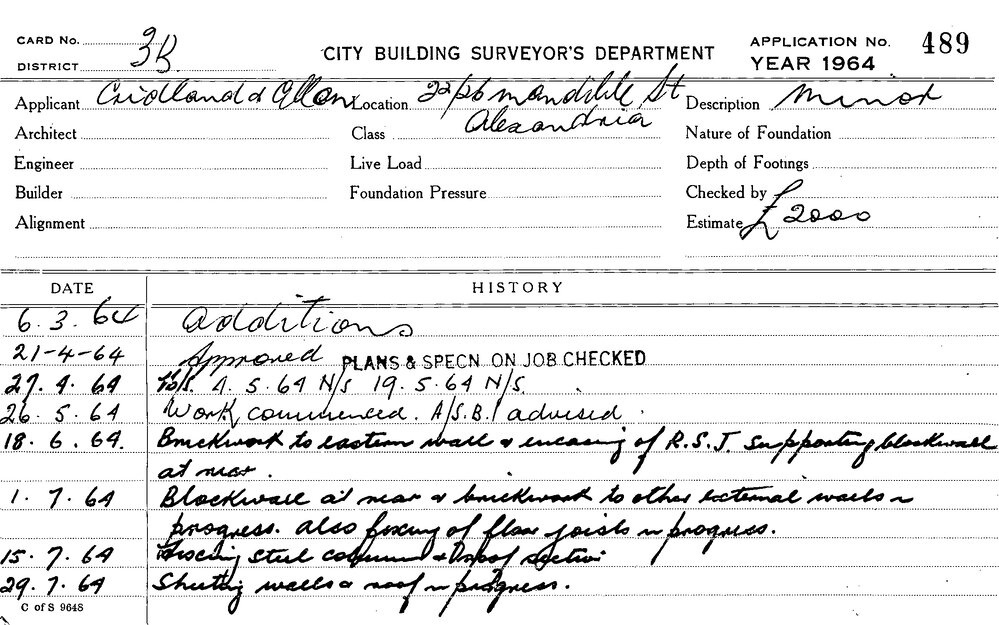 CARD No. 3B CITY BUILDING SURVEYOR'S DEPARTMENT APPLICATION No. 489
DISTRICT YEAR 1964
Applicant Cridland & Allan Location 22/26 Mandible St Description Minor
Alexandria
Architect Class Nature of Foundation
Engineer Live Load Depth of Footings
Builder Foundation Pressure Checked by
Alignment Estimate £2000
DATE HISTORY
6. 3. 64 additions
21-4-64 Approved PLANS & SPECN. ON JOB CHECKED
27. 4. 64 N/S. 4. 5. 64 N/S 19. 5. 64 N/S.
26. 5. 64 Work commenced. A/S.B.I advised.
18. 6. 64. Brickwork to eastern wall & encasing of R.S.J. supporting blockwall
at rear.
1. 7. 64 Blockwall at rear & brickwork to other external walls in
progress. also fixing of floor joists in progress.
15. 7. 64 Fixing steel columns & roof section
29. 7. 64 Sheeting walls & roof in progress.
C of S 9648